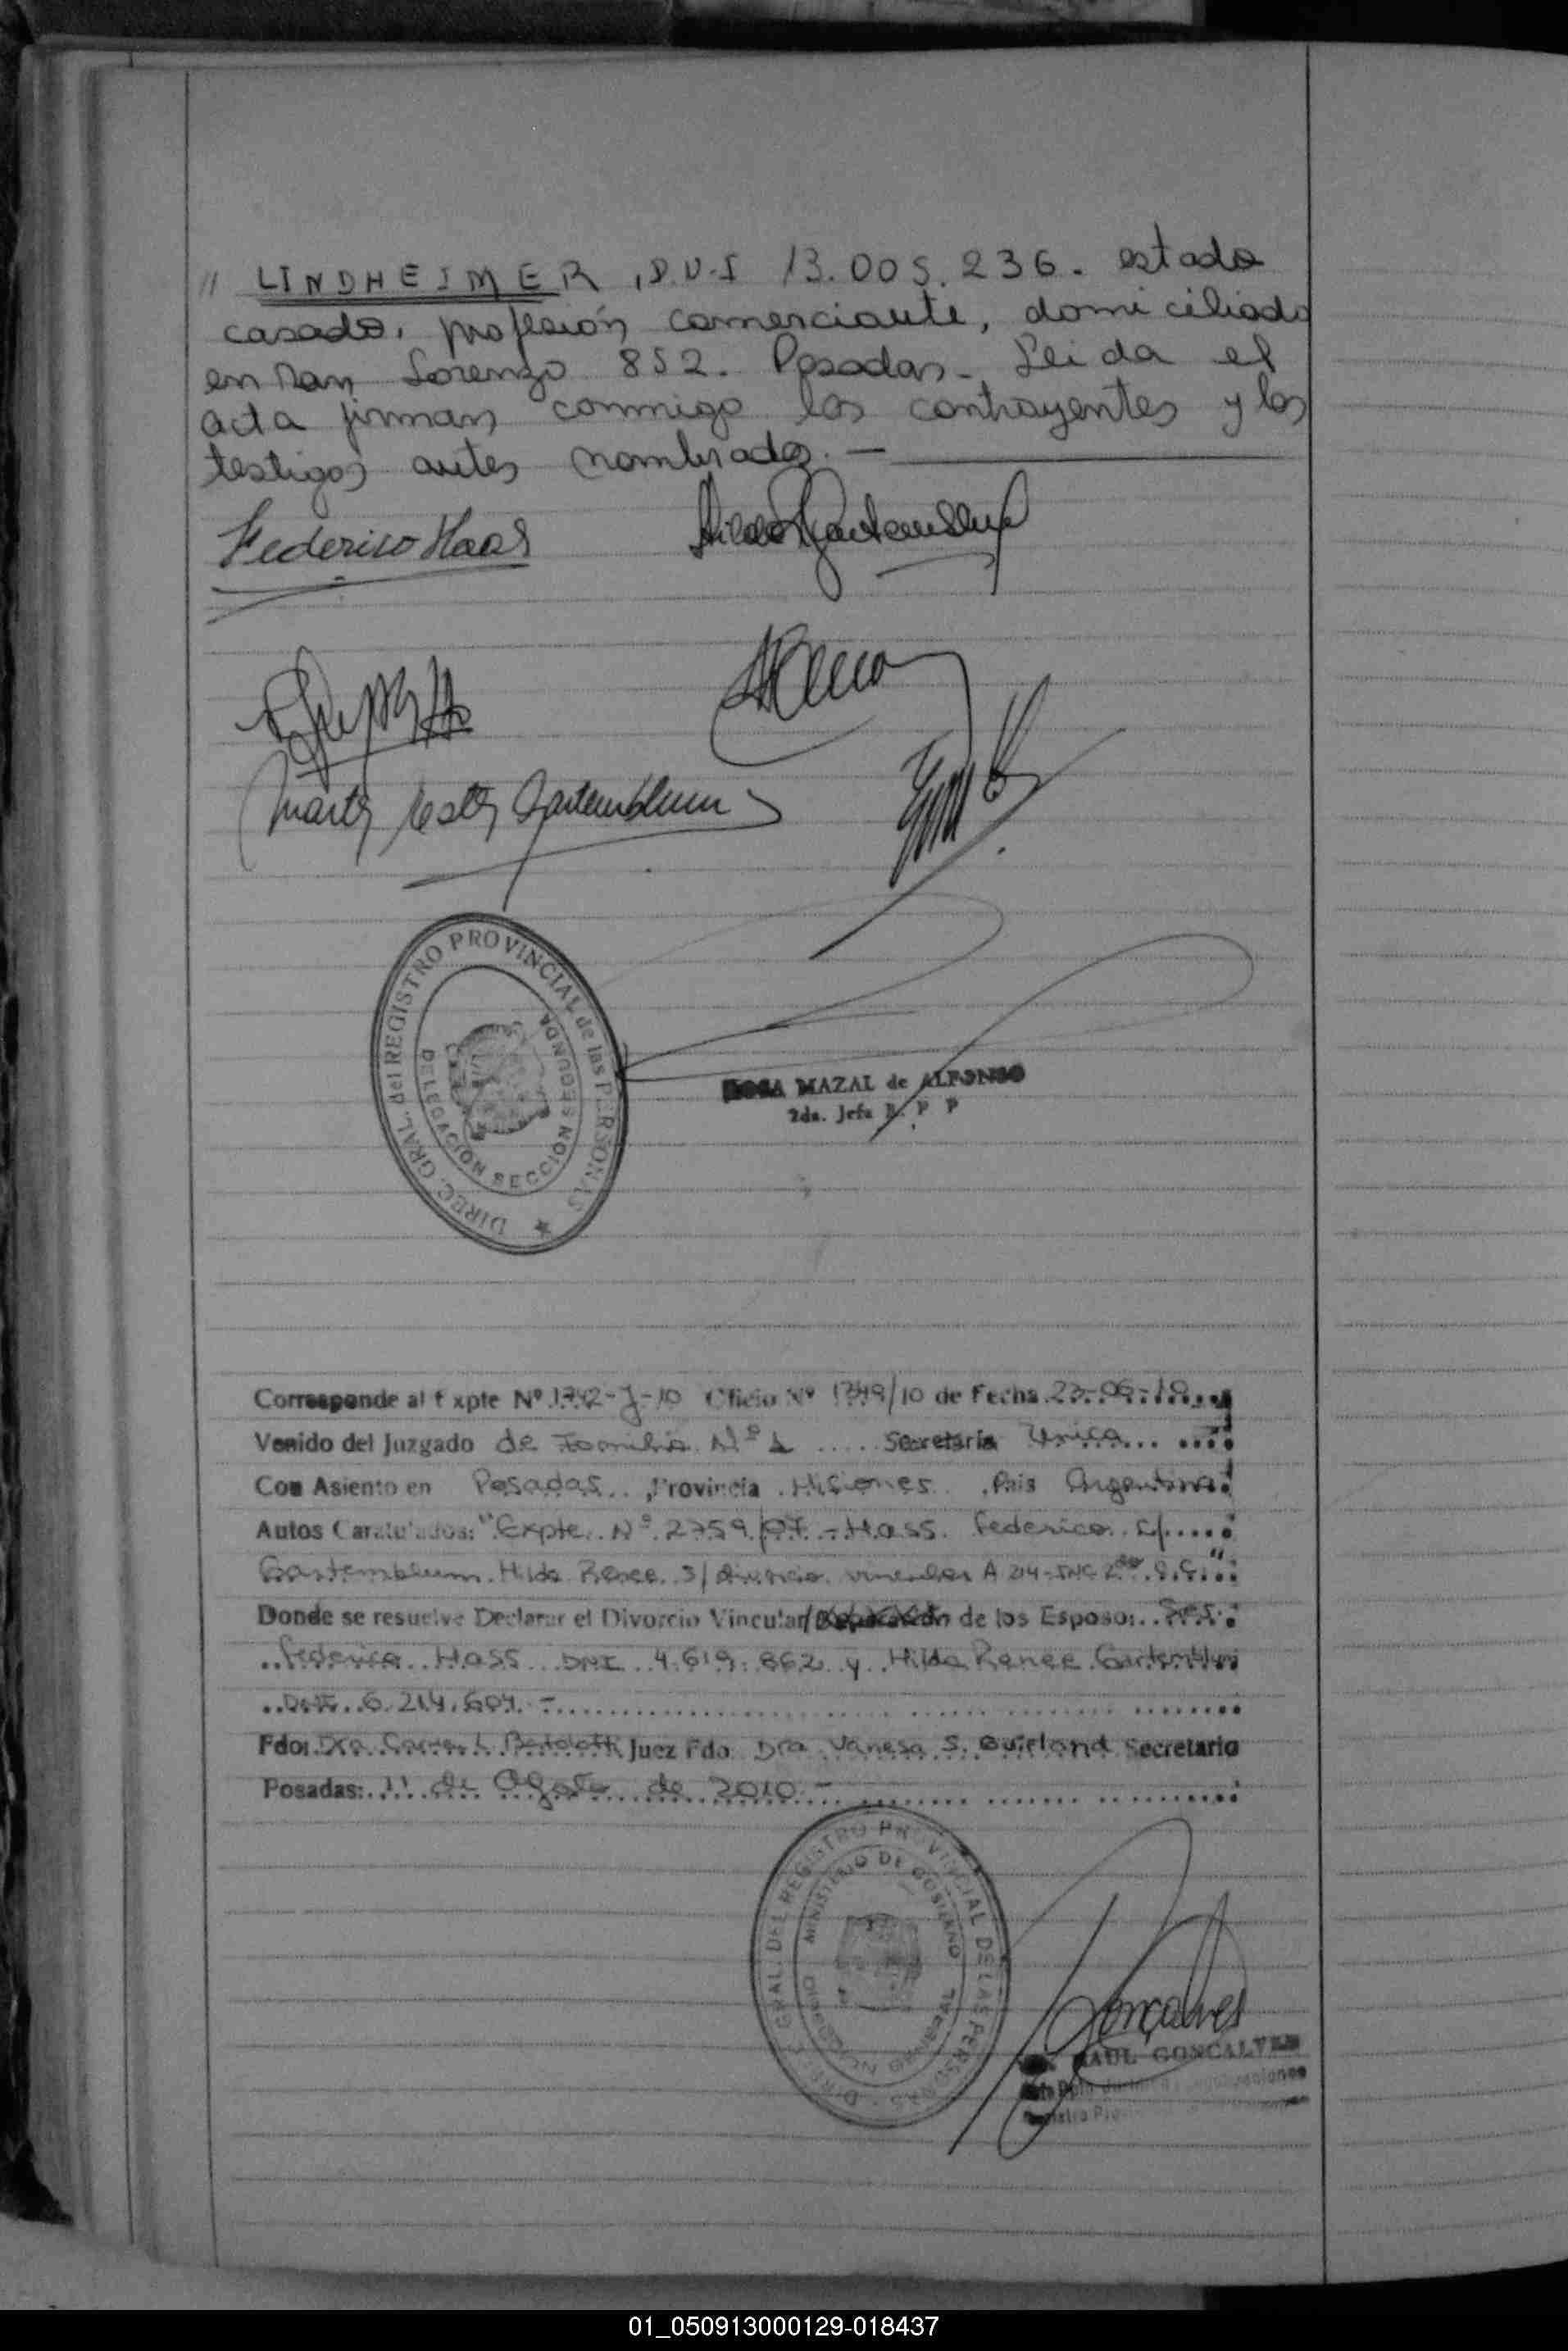 // LINDHEIMER, D.N.I 13.005.236. estado
casado, profesión comerciante, domiciliado
en San Lorenzo 852. Posadas. Leida el
acta firman conmigo los contrayentes y los
testigos antes nombrados. —
Federico Haas
Hilda R Gartemblum
Marta Ester Gartemblum
DIREC. GRAL. del REGISTRO PROVINCIAL de las PERSONAS
DELEGACION SECCION SEGUNDA
ROSA MAZAL de ALFONSO
2da. Jefa R. P. P
Corresponde al Expte Nº 1742-J-10 Oficio Nº 1349/10 de Fecha 23-06-10
Venido del Juzgado de Familia Nº 1 Secretaria Unica
Con Asiento en Posadas, Provincia Misiones Pais Argentina
Autos Caratulados: "Expte Nº 2759/07 - Hass Federico c/
Gartemblum Hilda Renee S/ divorcio vincular A 214-INC 2do C.C."
Donde se resuelve Declarar el Divorcio Vincular/ de los Esposos: Sres.
Federico Hass DNI 4.619.862 y Hilda Renee Gartemblum
DNI 6.214.604 -
Fdo: Dra L. Bertolotti Juez Fdo: Dra Vanesa S. Secretario
Posadas: 11 de Agosto de 2010 -
DIREC. GRAL. DEL REGISTRO PROVINCIAL DE LAS PERSONAS
MINISTERIO DE GOBIERNO
Gonçalves
RAUL GONCALVES
01_050913000129-018437